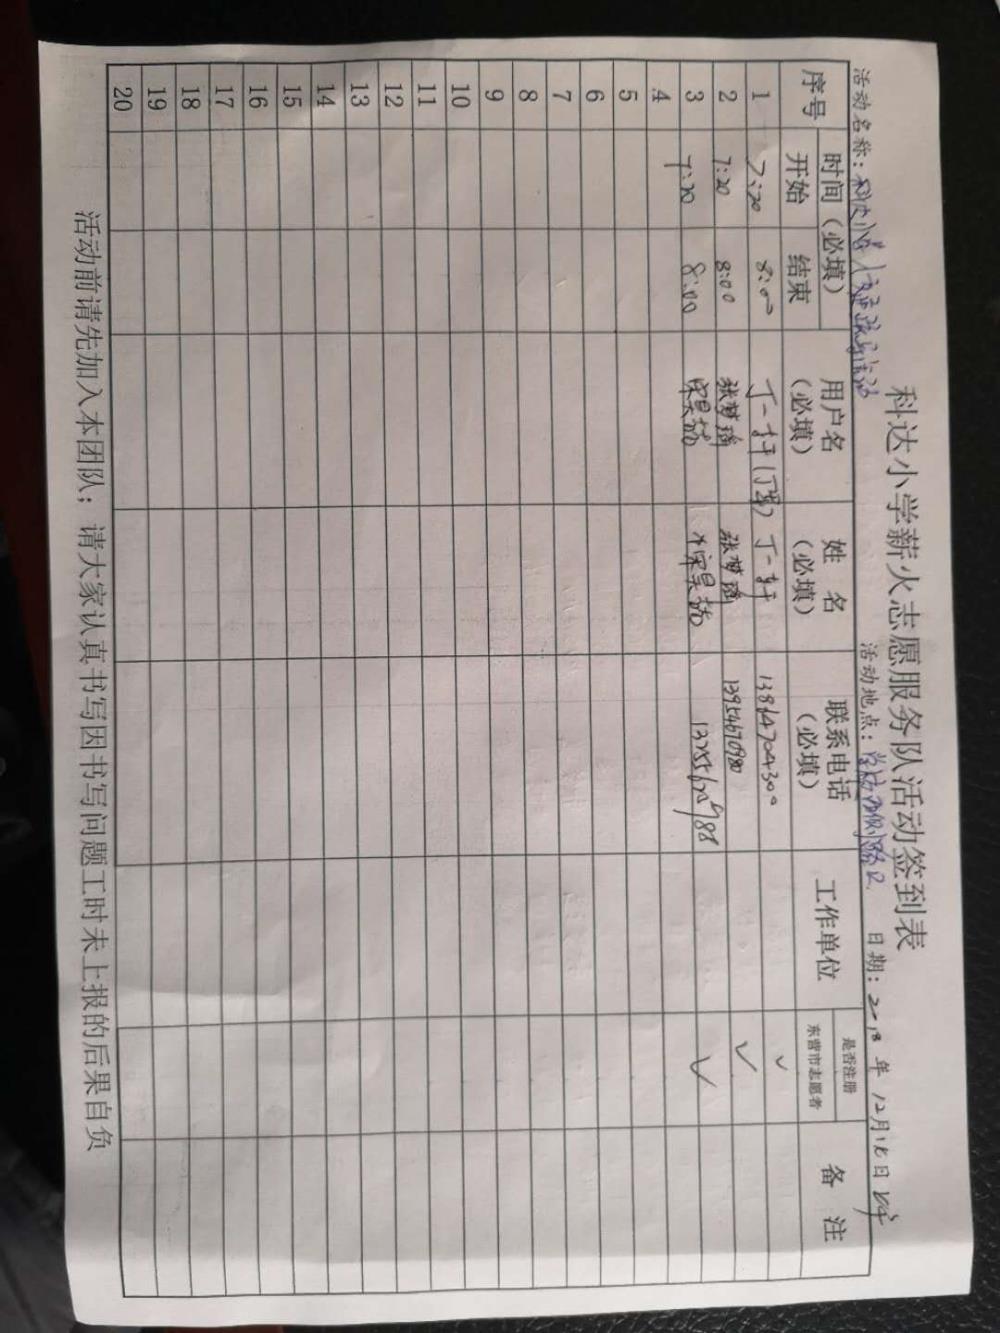 科达小学薪火志愿服务队活动签到表
活动名称：科达小学 活动地点：学校西侧路口 日期：2018年12月18日
序号 时间（必填） 用户名（必填） 姓名（必填） 联系电话（必填） 工作单位 是否注册东营市志愿者 备注
开始 结束
1 7:20 8:00 丁一轩 丁一轩 13864704300 ✓
2 7:20 8:00 张梦瑶 张梦瑶 ✓
3 7:20 8:00 ✓
4
5
6
7
8
9
10
11
12
13
14
15
16
17
18
19
20
活动前请先加入本团队；请大家认真书写因书写问题工时未上报的后果自负